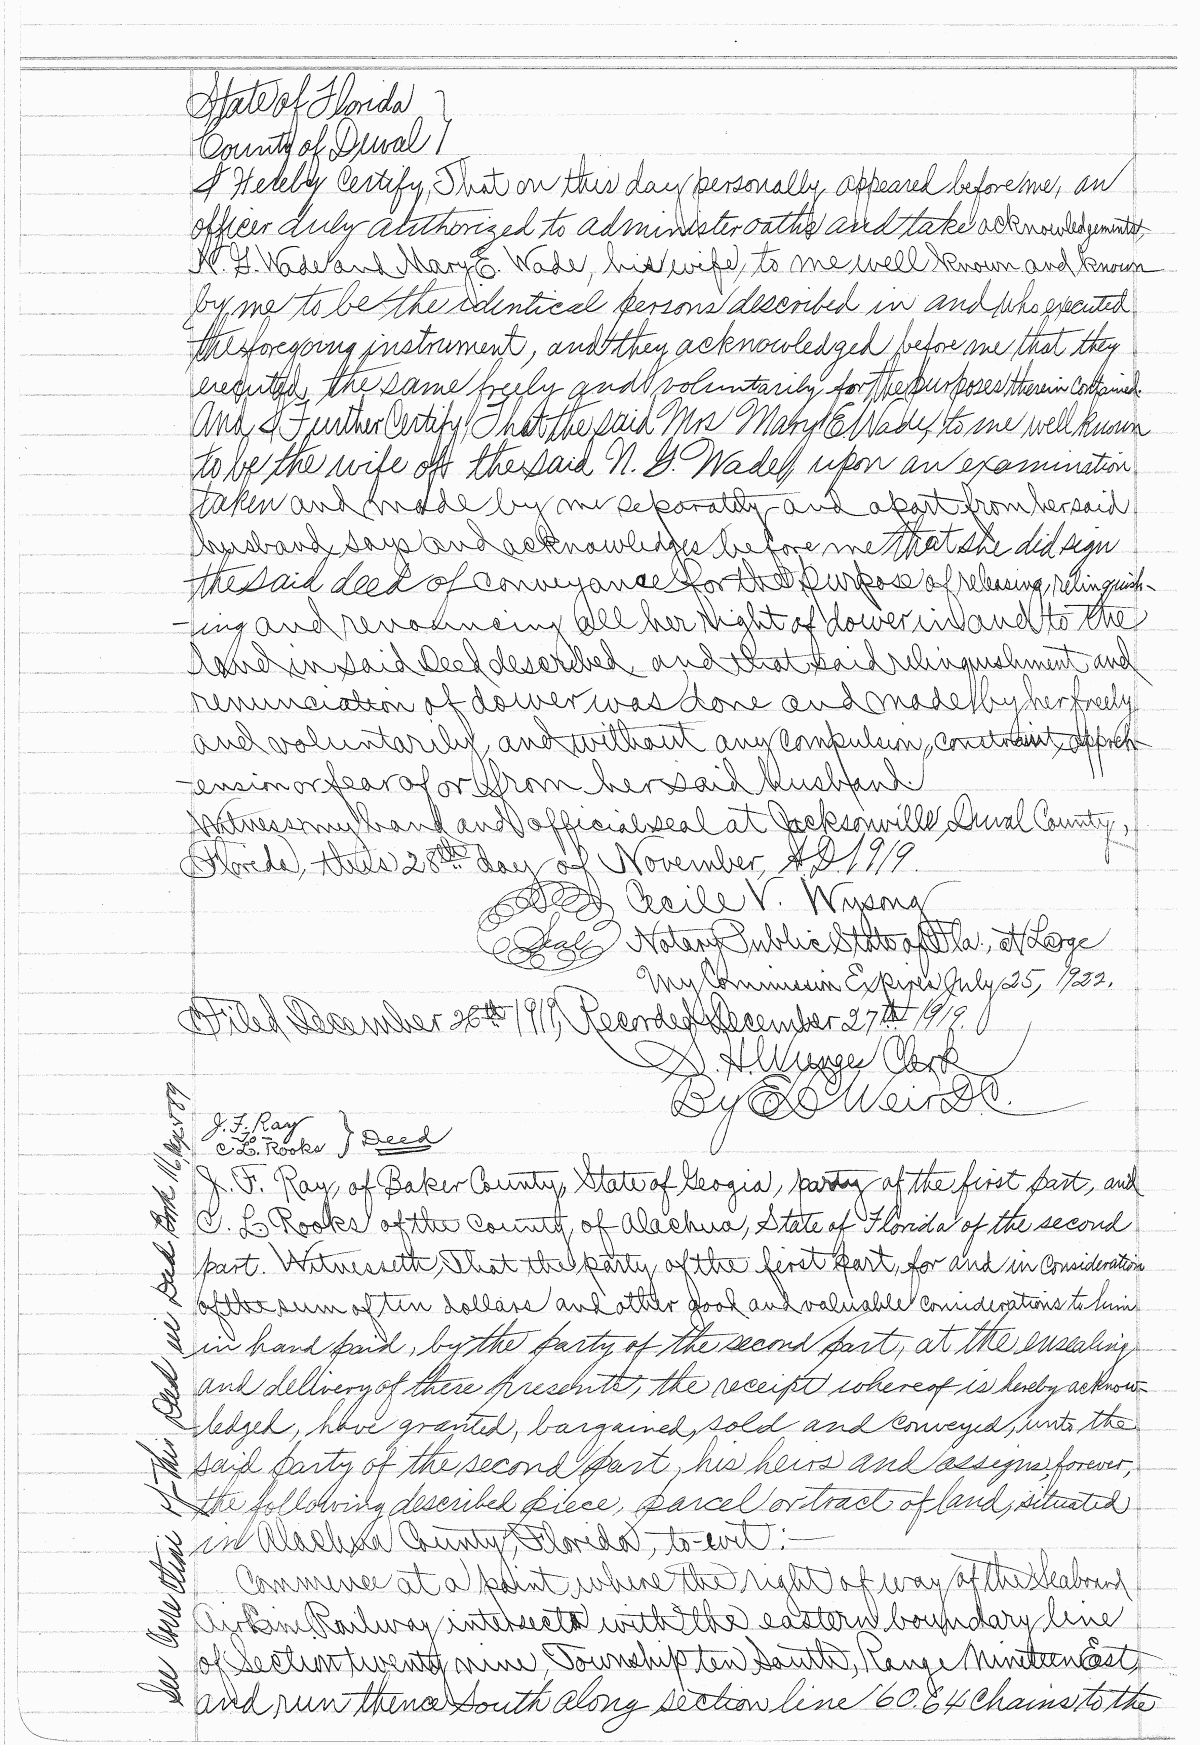 State of Florida }
County of Duval }
I Hereby Certify, That on this day personally appeared before me, an
officer duly authorized to administer oaths and take acknowledgements,
N. G. Wade and Mary E. Wade, his wife, to me well known and known
by me to be the identical persons described in and who executed
the foregoing instrument, and they acknowledged before me that they
executed the same freely and voluntarily for the purposes therein contained.
And I Further Certify, That the said Mrs Mary E Wade, to me well known
to be the wife of the said N. G. Wade, upon an examination
taken and made by me separately and apart from her said
husband, says and acknowledges before me that she did sign
the said deed of conveyance for the purpose of releasing, relinquish-
-ing and renouncing all her right of dower in and to the
land in said Deed described, and that said relinquishment and
renunciation of dower was done and made by her freely
and voluntarily, and without any compulsion, constraint, appreh-
-ension or fear of or from her said husband.
Witness my hand and official seal at Jacksonville, Duval County,
Florida, this 28th day of November, A.D. 1919.
Cecile V. Wysong
Seal Notary Public State of Fla., at Large
My Commission Expires July 25, 1922.
Filed December 26th 1919, Recorded December 27th 1919.
S. H. Wienges Clerk
By E D Weir D.C.
J. F. Ray
-To-
C. L. Rooks } Deed
J. F. Ray, of Baker County, State of Geogia, party of the first part, and
C. L Rooks of the County, of Alachua, State of Florida of the second
part. Witnesseth, That the party of the first part, for and in consideration
of the sum of ten dollars and other good and valuable considerations to him
in hand paid, by the party of the second part, at the ensealing
and delivery of these presents, the receipt whereof is hereby acknow-
ledged, have granted, bargained, sold and conveyed, unto the
said party of the second part, his heirs and assigns, forever,
the following described piece, parcel or tract of land, situated
in Alachua County, Florida, to-wit:-
Commence at a point where the right of way of the Seaboard
Air Line Railway intersects with the eastern boundary line
of Section twenty nine, Township ten South, Range Nineteen East,
and run thence South along section line 60.64 Chains to the
See Correction of This Deed in Deed Book 116, Page 89